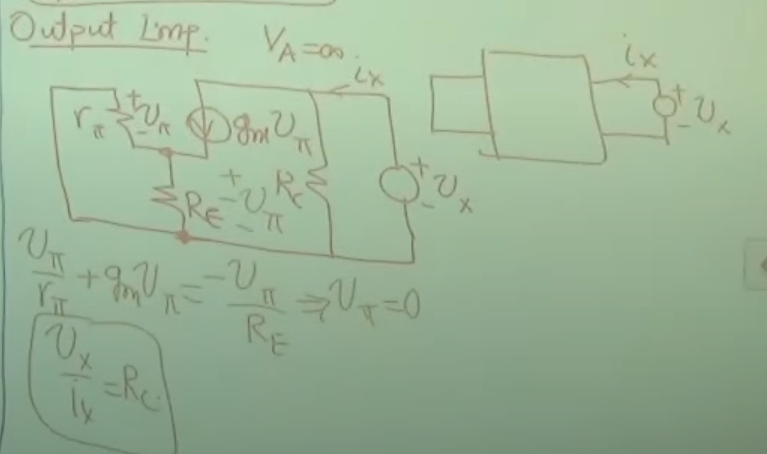 Output Imp. V_A=∞.
i_x
i_x
r_π + v_π - g_m v_π
+ - v_x
R_E + - v_π - R_C
+ - v_x
v_π/r_π + g_m v_π = -v_π/R_E ⇒ v_π = 0
v_x/i_x = R_C.